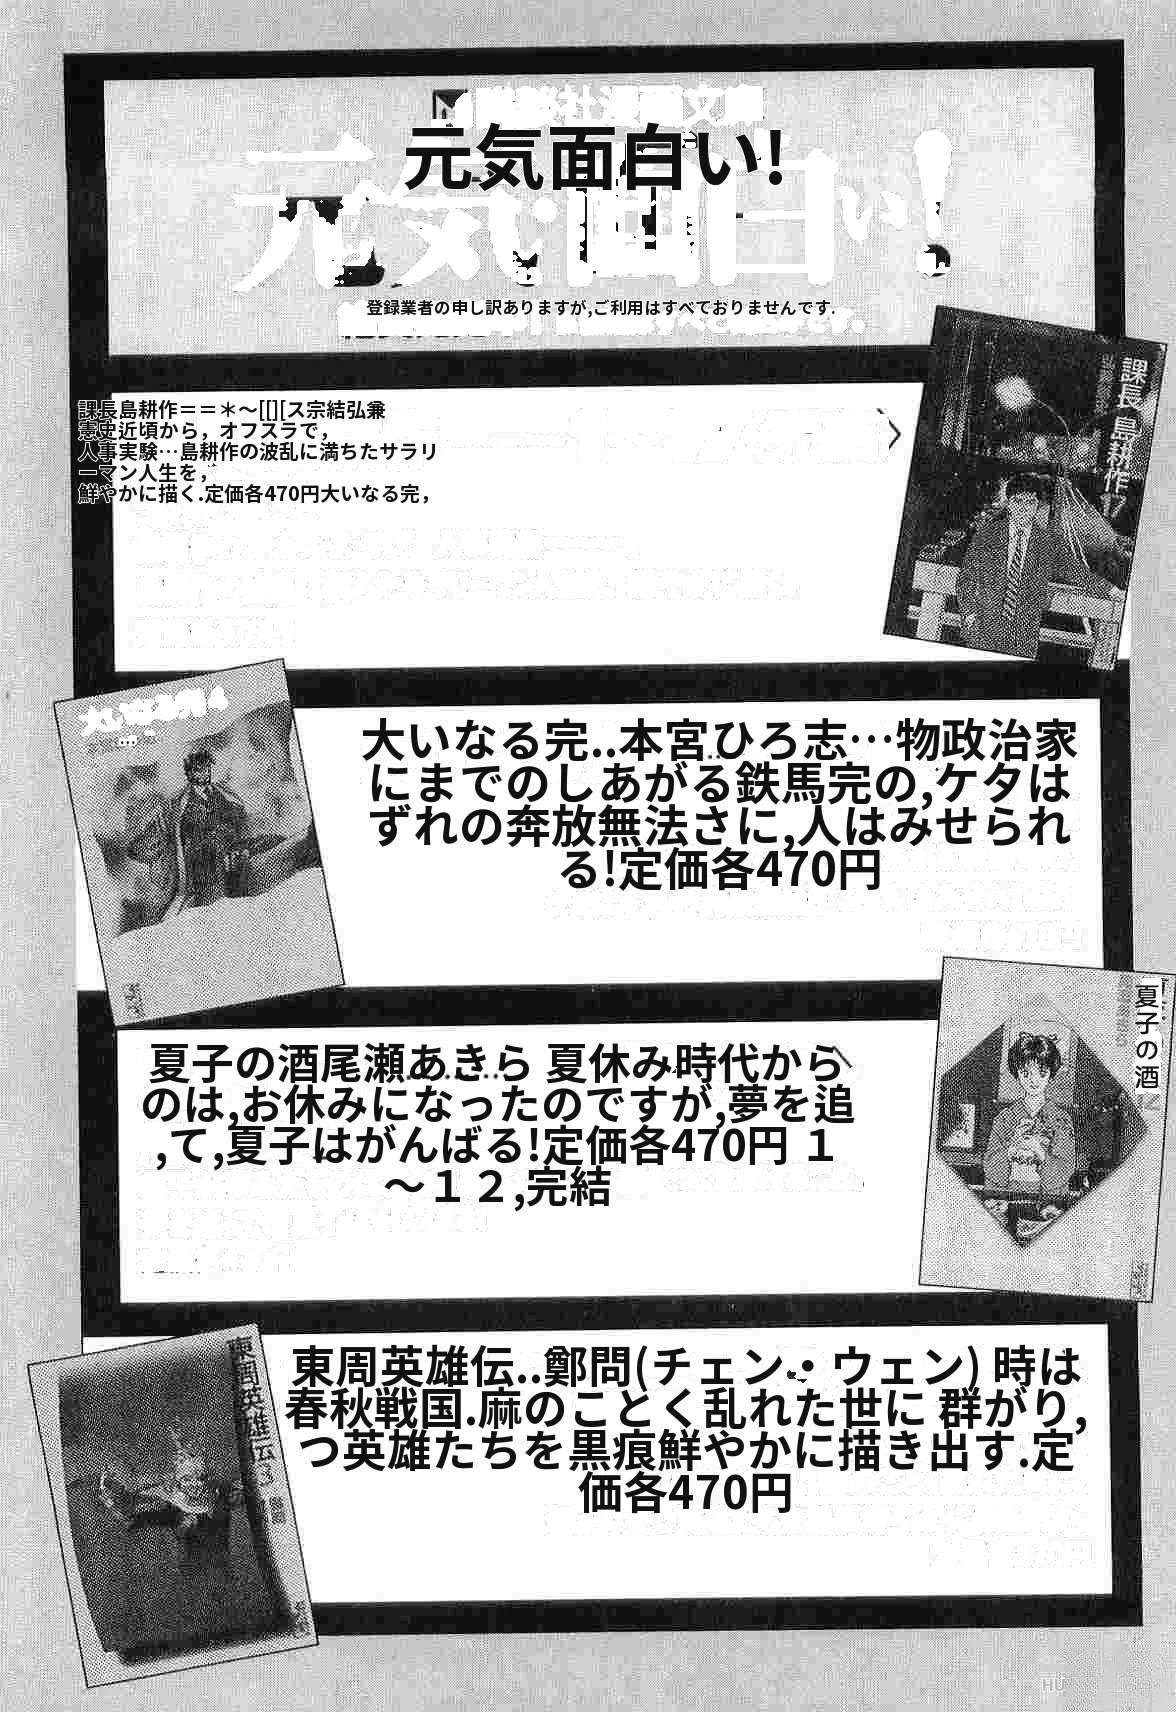 社漫画文庫
元気面白い!
元気面白い!
登録業者の申し訳ありますが,ご利用はすべておりませんです.
課長島耕作
17
課長島耕作==*~[[][ス宗結弘兼
憲史近頃から，オフスラで，
人事実験…島耕作の波乱に満ちたサラリ
ーマン人生を，
鮮やかに描く.定価各470円大いなる完，
大いなる完..本宮ひろ志…物政治家
にまでのしあがる鉄馬完の,ケタは
ずれの奔放無法さに,人はみせられ
る!定価各470円
夏子の酒
夏子の酒尾瀬あきら 夏休み時代から
のは,お休みになったのですが,夢を追
,て,夏子はがんばる!定価各470円 １
～１２,完結
東周英雄伝
3
東周英雄伝..鄭問(チェン・ウェン) 時は
春秋戦国.麻のことく乱れた世に 群がり,
つ英雄たちを黒痕鮮やかに描き出す.定
価各470円